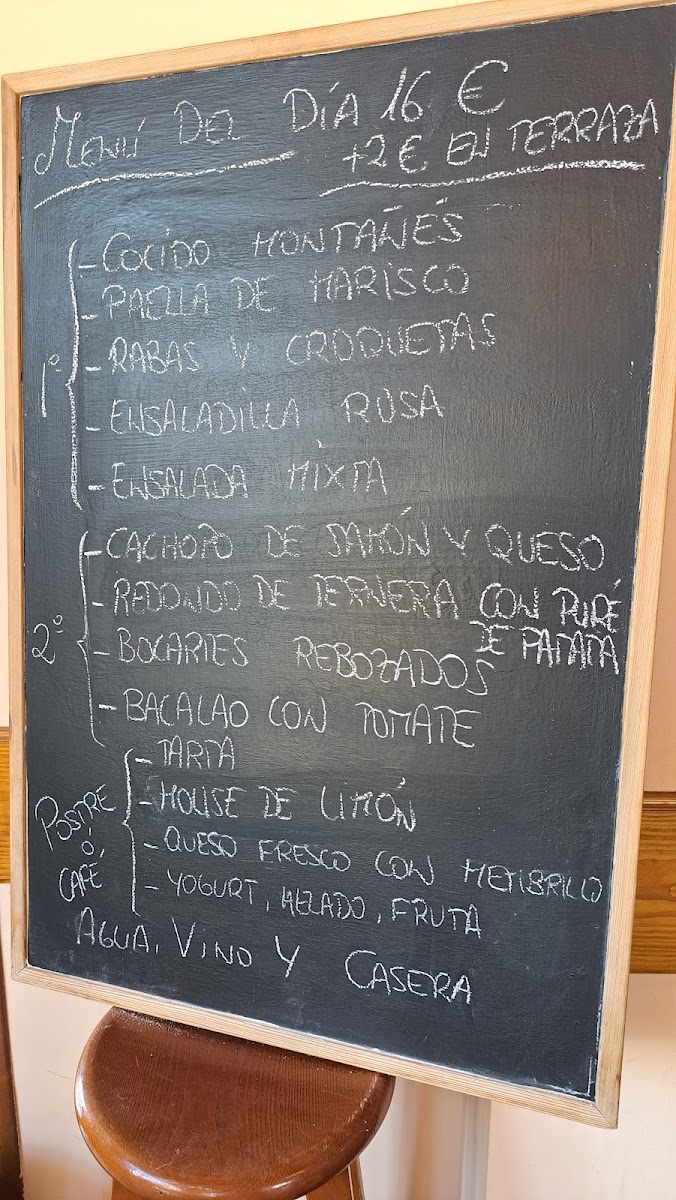 Menú Del Día 16 €
+2€ EN TERRAZA
1º
- COCIDO MONTAÑÉS
- PAELLA DE MARISCO
- RABAS Y CROQUETAS
- ENSALADILLA RUSA
- ENSALADA MIXTA
2º
- CACHOPO DE JAMÓN Y QUESO
- REDONDO DE TERNERA CON PURÉ
DE PATATA
- BOCARTES REBOZADOS
- BACALAO CON TOMATE
POSTRE
Ó
CAFÉ
- TARTA
- MOUSE DE LIMÓN
- QUESO FRESCO CON MEMBRILLO
- YOGURT, HELADO, FRUTA
AGUA, VINO Y CASERA